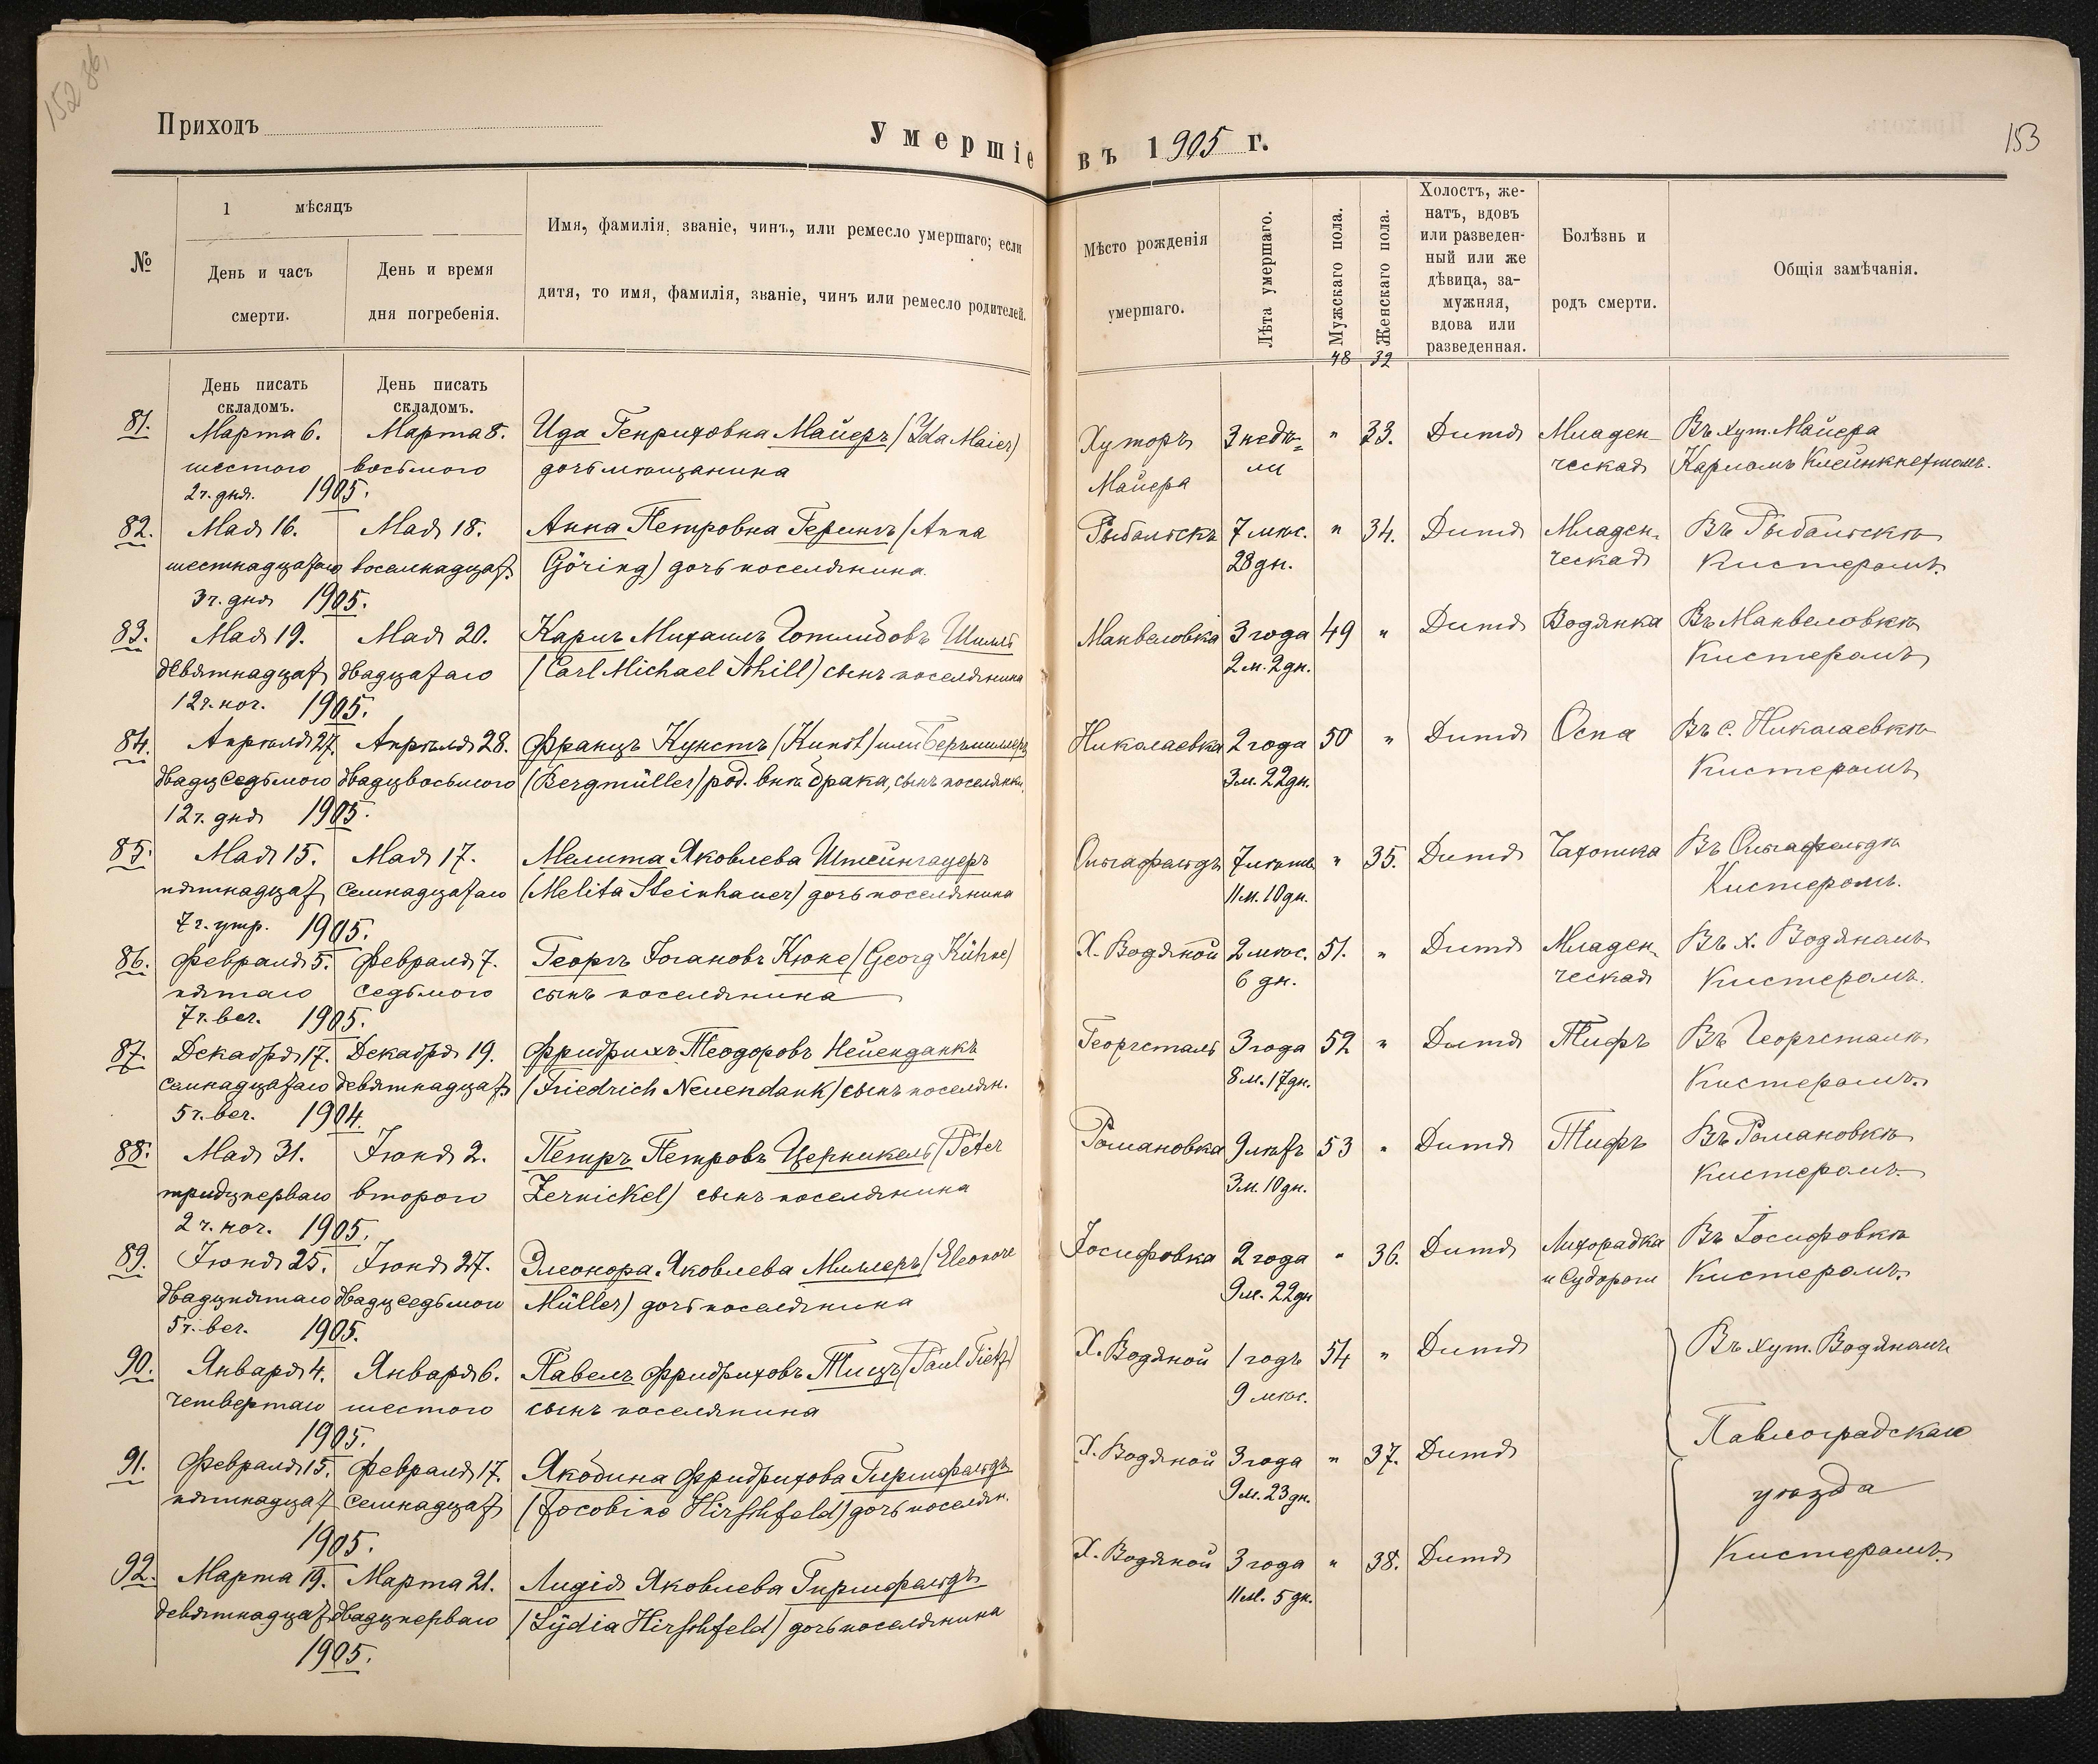 152 об.
153
Приходъ
Умершіе въ 1905 г.
№
1 мѣсяцъ
День и часъ смерти.
День и время дня погребенія.
Имя, фамилія, званіе, чинъ, или ремесло умершаго; если
дитя, то имя, фамилія, званіе, чинъ или ремесло родителей.
Мѣсто рожденія умершаго.
Лѣта умершаго.
Мужскаго пола.
Женскаго пола.
Холостъ, же-
натъ, вдовъ
или разведен-
ный или же
дѣвица, за-
мужняя,
вдова или
разведенная.
Болѣзнь и родъ смерти.
Общія замѣчанія.
48 32
День писать складомъ.
День писать складомъ.
81. Марта 6. Марта 8. Ида Генрихова Майеръ (Ida Maier) Хуторъ 3 недѣ= " 33. Дитя Младен- Въ хут. Майера
шестого восьмого дочь мѣщанина Майера ли ческая Карломъ Клейнкнехтомъ.
2 ч. дня. 1905.
82. Мая 16. Мая 18. Анна Петровна Герингъ (Anna Рыбальскъ 7 мѣс. " 34. Дитя Младен- Въ Рыбальскѣ
шестнадцатаго восемнадцат. Göring) дочь поселянина. 28 дн. ческая Кистеромъ.
3 ч. дня 1905.
83. Мая 19. Мая 20. Карлъ Михаилъ Готлибовъ Шилль Манвеловка 3 года 49 " Дитя Водянка Въ Манвеловкѣ
девятнадцат двадцатаго (Carl Michael Schill) сынъ поселянина 2 м. 2 дн. Кистеромъ
12 ч. ноч. 1905.
84. Апрѣля 27. Апрѣля 28. Францъ Кунстъ (Kunst) или Бергмиллеръ Николаевка 2 года 50 " Дитя Оспа Въ с. Николаевкѣ
двадцседьмого двадцвосьмого (Bergmüller) род. внѣ брака, сынъ поселянки. 3 м. 22 дн. Кистеромъ
12 ч. дня 1905.
85. Мая 15. Мая 17. Мелита Яковлева Штейнгауеръ Ольгафельдъ 7 лѣтъ " 35. Дитя Чахотка Въ Ольгафельдѣ
пятнадцат семнадцатаго (Melita Steinhauer) дочь поселянина 11 м. 10 дн. Кистеромъ.
7 ч. утр. 1905.
86. Февраля 5. Февраля 7. Георгъ Іогановъ Кюне (Georg Kühne) Х. Водяной 2 мѣс. 51. " Дитя Младен- Въ х. Водяномъ
пятаго седьмого сынъ поселянина 6 дн. ческая Кистеромъ.
7 ч. веч. 1905.
87. Декабря 17. Декабря 19. Фридрихъ Теодоровъ Нейенданкъ Георгсталь 3 года 52 " Дитя Тифъ Въ Георгсталѣ
семнадцатаго девятнадцат (Friedrich Neuendank) сынъ поселян. 8 м. 17 дн. Кистеромъ.
5 ч. веч. 1904.
88. Мая 31. Іюня 2. Петръ Петровъ Церникель (Peter Романовка 9 лѣтъ 53 " Дитя Тифъ Въ Романовкѣ
тридцперваго второго Zernickel) сынъ поселянина 3 м. 10 дн. Кистеромъ.
2 ч. ноч. 1905.
89. Іюня 25. Іюня 27. Элеонора Яковлева Миллеръ (Eleonore Іосифовка 2 года " 36. Дитя Лихорадка Въ Іосифовкѣ
двадцпятаго двадцседьмого Müller) дочь поселянина 9 м. 22 дн и судороги Кистеромъ.
5 ч. веч. 1905.
90. Января 4. Января 6. Павелъ Фридриховъ Тицъ (Paul Tietz) Х. Водяной 1 годъ 54 " Дитя Въ хут. Водяномъ
четвертаго шестого сынъ поселянина 9 мѣс.
1905. Павлоградскаго
91. Февраля 15. Февраля 17. Якобина Фридрихова Гиршфельдъ Х. Водяной 3 года " 37. Дитя
пятнадцат семнадцат (Jacobine Hirschfeld) дочь поселян. 9 м. 23 дн. уѣзда
1905.
92. Марта 19. Марта 21. Лидія Яковлева Гиршфельдъ Х. Водяной 3 года " 38. Дитя Кистеромъ.
девятнадцат двадцперваго (Lydia Hirschfeld) дочь поселянина 11 м. 5 дн.
1905.